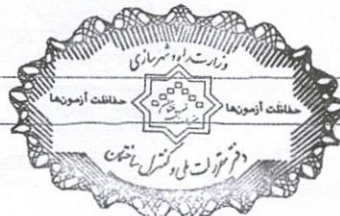 وزارت راه و شهرسازی
حفاظت آزمون‌ها حفاظت آزمون‌ها
دفتر مقررات ملی و کنترل ساختمان